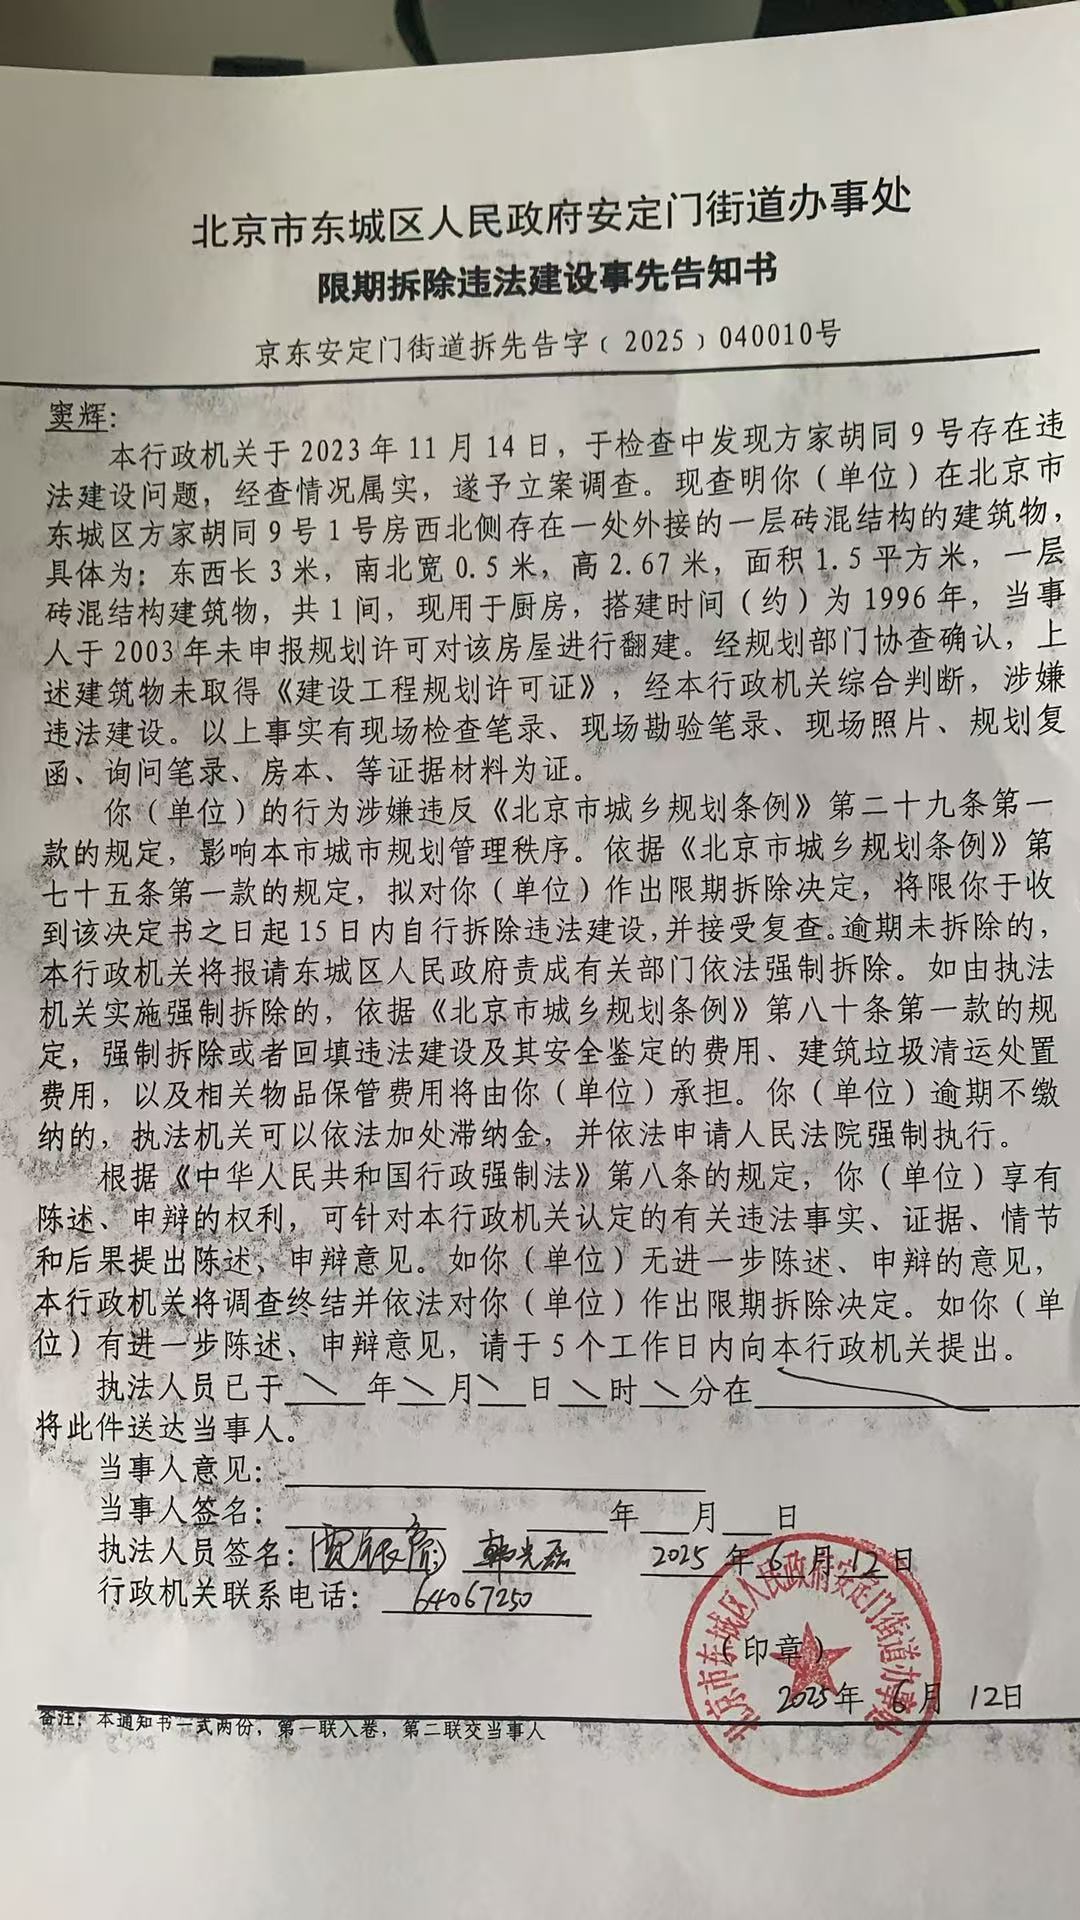 北京市东城区人民政府安定门街道办事处
限期拆除违法建设事先告知书
京东安定门街道拆先告字﹝2025﹞040010号
窦辉：
本行政机关于2023年11月14日，于检查中发现方家胡同9号存在违
法建设问题，经查情况属实，遂予立案调查。现查明你（单位）在北京市
东城区方家胡同9号1号房西北侧存在一处外接的一层砖混结构的建筑物，
具体为：东西长3米，南北宽0.5米，高2.67米，面积1.5平方米，一层
砖混结构建筑物，共1间，现用于厨房，搭建时间（约）为1996年，当事
人于2003年未申报规划许可对该房屋进行翻建。经规划部门协查确认，上
述建筑物未取得《建设工程规划许可证》，经本行政机关综合判断，涉嫌
违法建设。以上事实有现场检查笔录、现场勘验笔录、现场照片、规划复
函、询问笔录、房本、等证据材料为证。
你（单位）的行为涉嫌违反《北京市城乡规划条例》第二十九条第一
款的规定，影响本市城市规划管理秩序。依据《北京市城乡规划条例》第
七十五条第一款的规定，拟对你（单位）作出限期拆除决定，将限你于收
到该决定书之日起15日内自行拆除违法建设，并接受复查。逾期未拆除的，
本行政机关将报请东城区人民政府责成有关部门依法强制拆除。如由执法
机关实施强制拆除的，依据《北京市城乡规划条例》第八十条第一款的规
定，强制拆除或者回填违法建设及其安全鉴定的费用、建筑垃圾清运处置
费用，以及相关物品保管费用将由你（单位）承担。你（单位）逾期不缴
纳的，执法机关可以依法加处滞纳金，并依法申请人民法院强制执行。
根据《中华人民共和国行政强制法》第八条的规定，你（单位）享有
陈述、申辩的权利，可针对本行政机关认定的有关违法事实、证据、情节
和后果提出陈述、申辩意见。如你（单位）无进一步陈述、申辩的意见，
本行政机关将调查终结并依法对你（单位）作出限期拆除决定。如你（单
位）有进一步陈述、申辩意见，请于5个工作日内向本行政机关提出。
执法人员已于 年 月 日 时 分在
将此件送达当事人。
当事人意见：
当事人签名： 年 月 日
执法人员签名： 韩光磊 2025年6月12日
行政机关联系电话： 64067250
（印章）
北京市东城区人民政府安定门街道办事处
2025年6月12日
备注：本通知书一式两份，第一联入卷，第二联交当事人